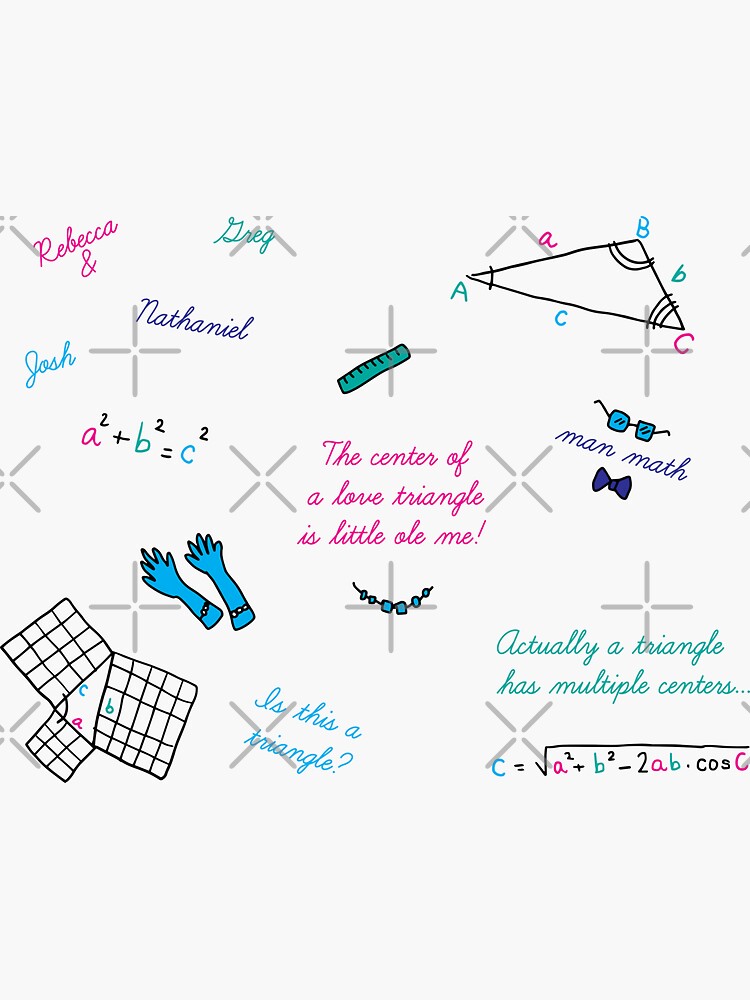 Rebecca
&
Greg
Nathaniel
Josh
a² + b² = c²
A
a
B
b
c
C
man math
The center of
a love triangle
is little ole me!
c
b
a
Is this a
triangle?
Actually a triangle
has multiple centers...
c = √a² + b² – 2ab · cos C